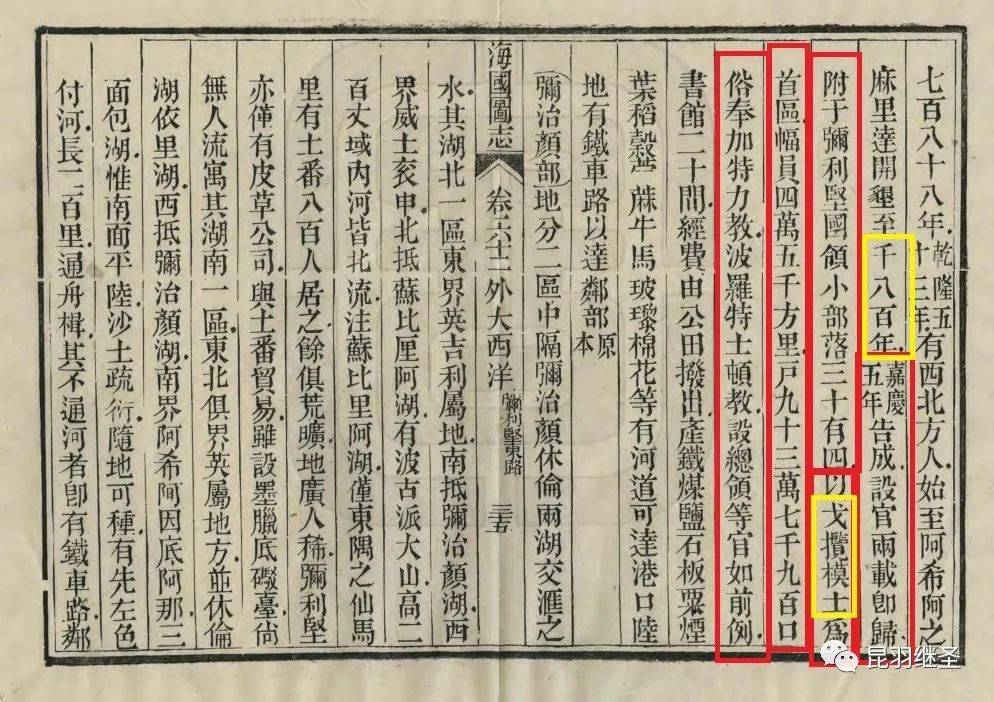 七百八十八年乾隆五十三年有西北方人始至阿希阿之
麻里達開墾至千八百年嘉慶五年告成設官兩載即歸
附于彌利堅國領小部落三十有四以戈攬模士爲
首區幅員四萬五千方里戶九十三萬七千九百口
俗奉加特力教波羅特士頓教設總領等官如前例
書館二十間經費由公田撥出產鐵煤鹽石板粟煙
葉稻穀蔴牛馬玻瓈棉花等有河道可達港口陸
地有鐵車路以達鄰部原本
彌治顏部地分二區中隔彌治顏休倫兩湖交滙之
海國圖志 卷六十二 外大西洋 彌利堅東路 三十五
水其湖北一區東界英吉利屬地南抵彌治顏湖西
界威士袞申北抵蘇比厘阿湖有波古派大山高二
百丈域內河皆北流注蘇比里阿湖僅東隅之仙馬
里有土番八百人居之餘俱荒曠地廣人稀彌利堅
亦僅有皮草公司與土番貿易雖設墨臘底礮臺尙
無人流寓其湖南一區東北俱界英屬地方並休倫
湖依里湖西抵彌治顏湖南界阿希阿因底阿那三
面包湖惟南面平陸沙土疏衍隨地可種有先左色
付河長二百里通舟楫其不通河者即有鐵車路鄰
昆羽继圣